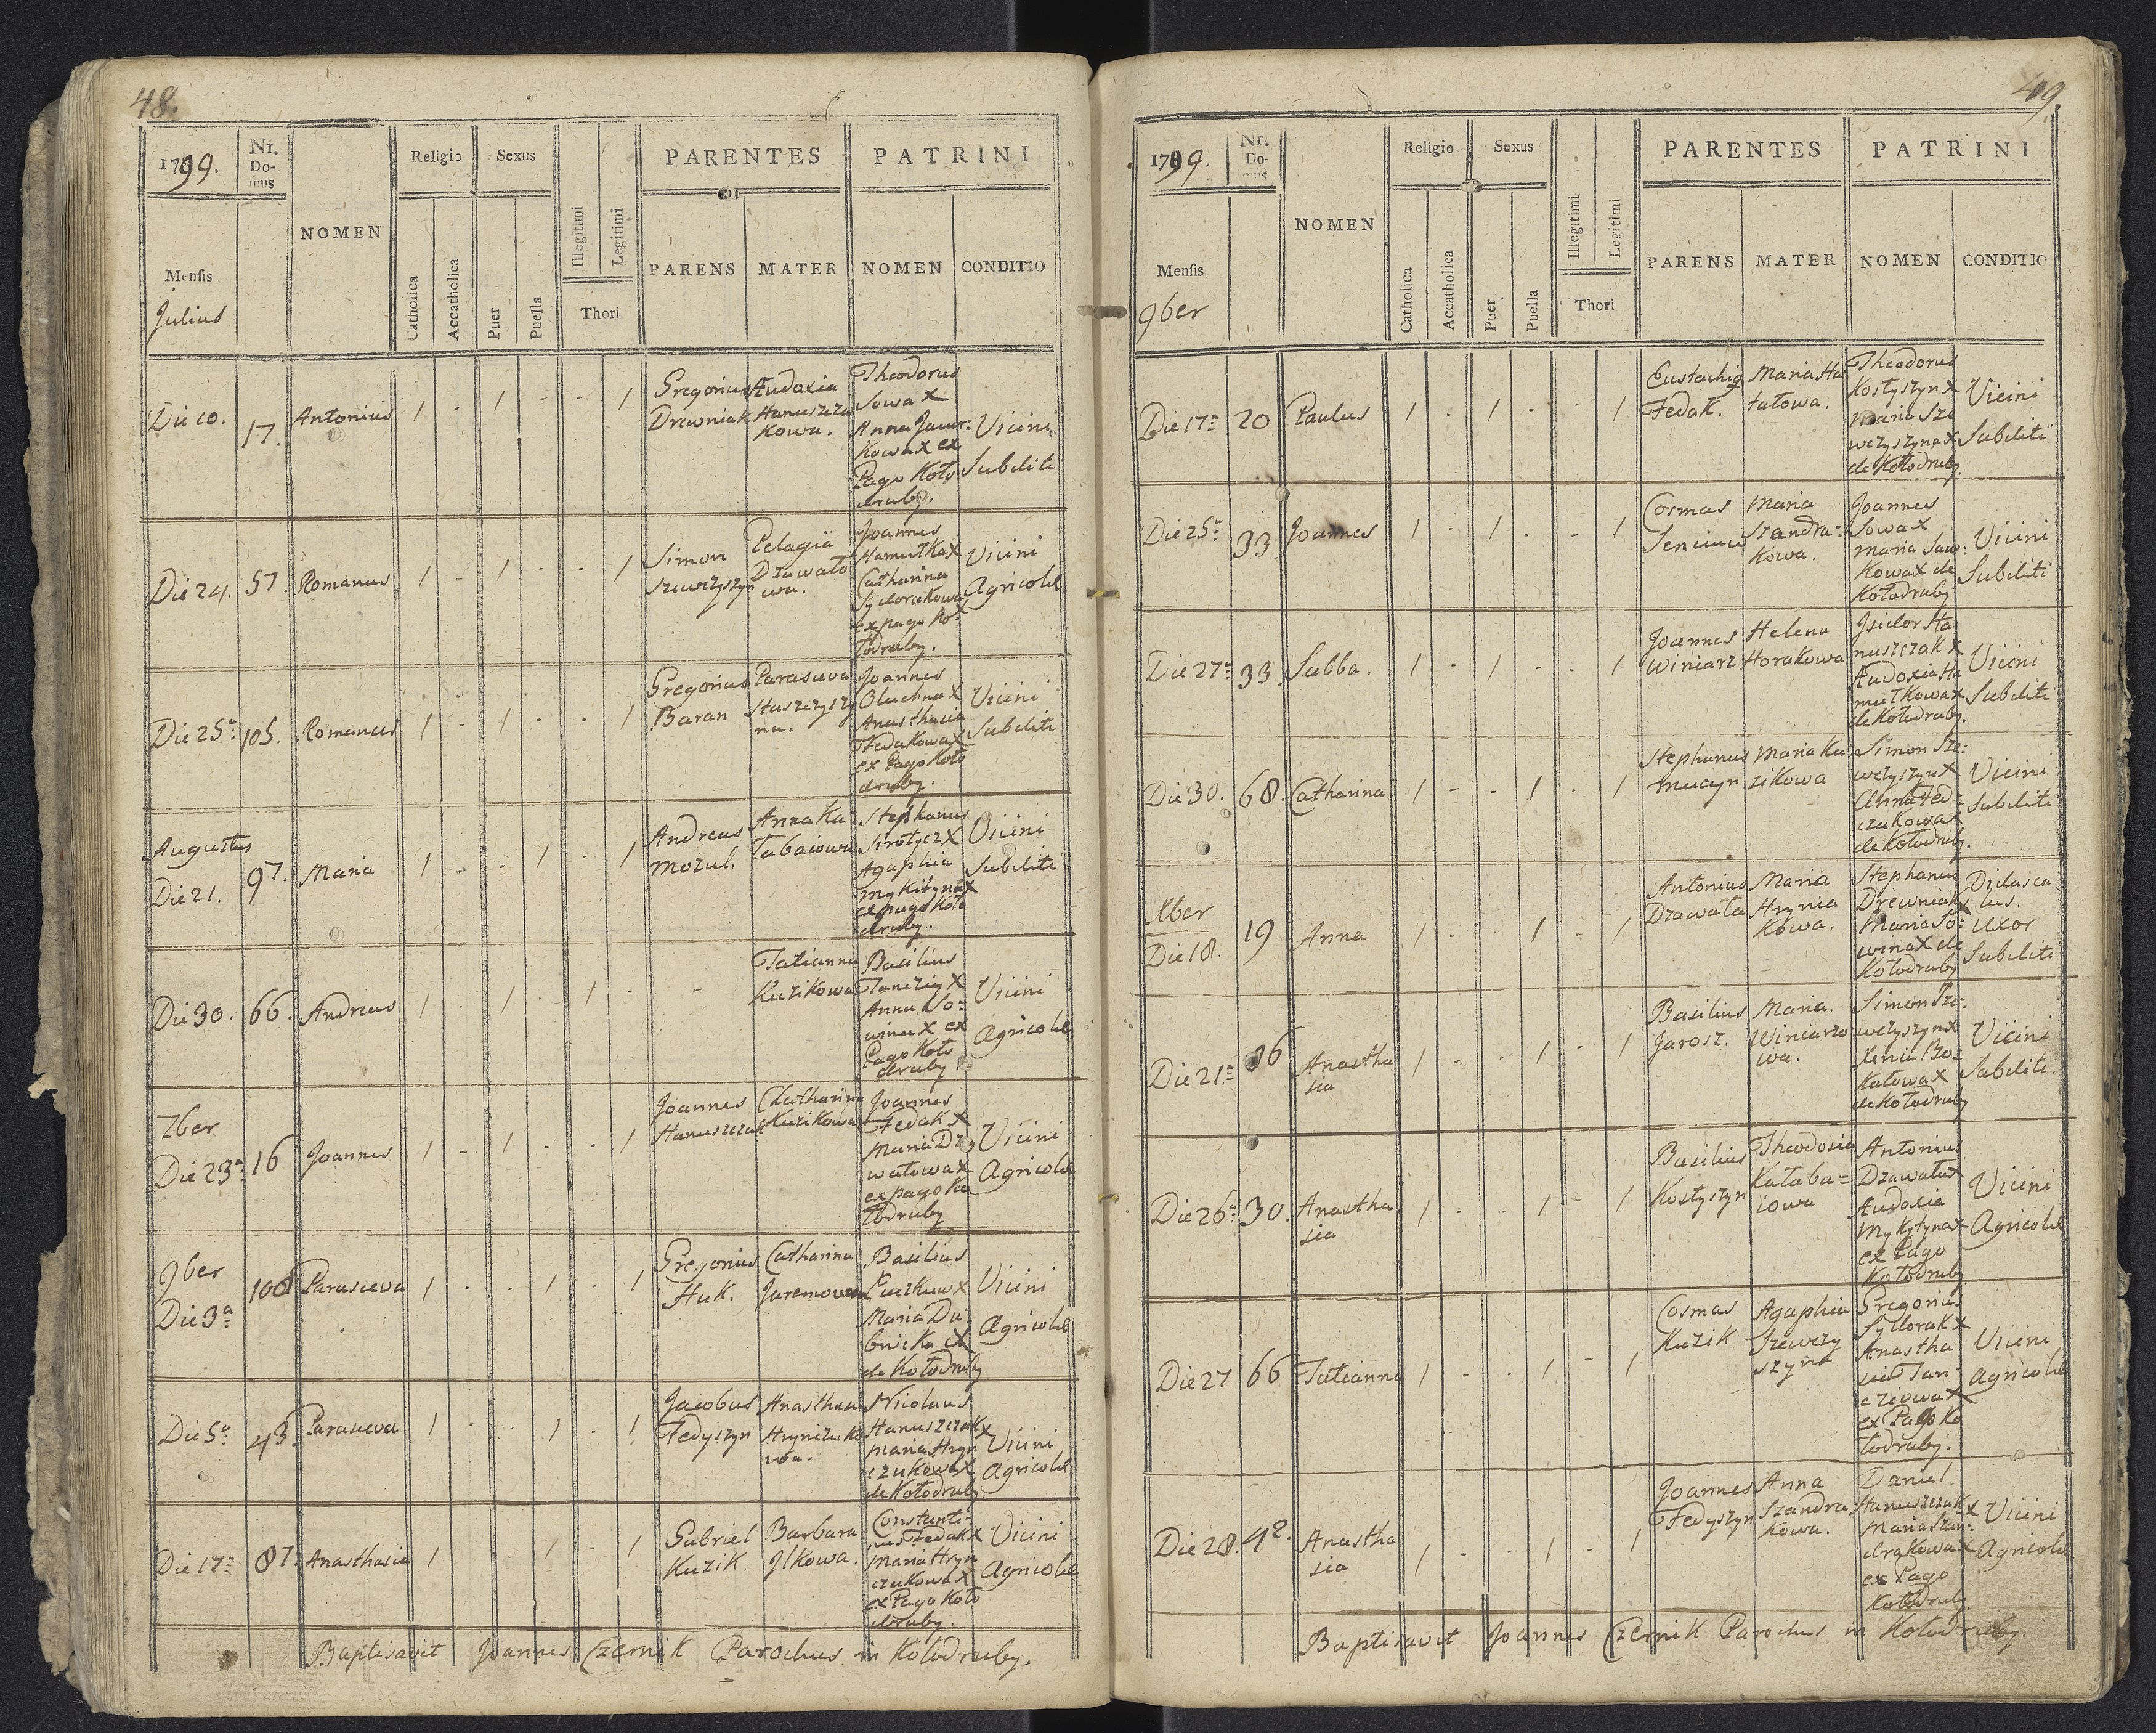 48.
1799.
Nr. Do-mus
NOMEN
Religio
Sexus
PARENTES
PATRINI
Mensis
Julius
Catholica
Accatholica
Puer
Puella
Illegitimi
Legitimi
Thori
PARENS
MATER
NOMEN
CONDITIO
Die 10. 17. Antonius 1 - 1 - - 1
Gregorius Drewniak
Eudoxia Hanuszczakowa.
Theodorus
Sowa X
Anna Jawor-
kowa X ex
Pago Koło
druby.
Vicini
Subditi
Die 24. 57. Romanus 1 - 1 - - 1
Simon Szewczyszyn
Pelagia Dzawało
wa.
Joannes
Hamułka X
Catharina
Sydorakowa
ex pago Ko-
łodruby.
Vicini
Agricolæ
Die 25ª 105. Romanus 1 - 1 - - 1
Gregorius Baran
Parasceva Staszczysz
na.
Joannes
Oluchna X
Anasthasia
Fedakowa X
ex Pago Koło
druby.
Vicini
Subditi
Augustus
Die 21. 97. Maria 1 - - 1 - 1
Andreas Mozul.
Anna Ka
łabaiowa
Stephanus
Sirotycz X
Agaphia
Mykityna X
ex pago Koło
druby.
Vicini
Subditi
Die 30. 66. Andreas 1 - 1 - 1 - -
Tatianna
Kuzikowa
Basilius
Tancziy X
Anna So-
wina X ex
Pago Koło
druby
Vicini
Agricolæ
7ber
Die 23ª 16 Joannes 1 - 1 - - 1
Joannes Hanuszczak
Catharina Kuzikowa
Joannes
Fedak X
Maria Dza
watowa X
ex pago Ko
łodruby
Vicini
Agricolæ
9ber
Die 3ª 100 Parasceva 1 - - 1 - 1
Gregorius Huk.
Catharina Jaremowa
Basilius
Puzkuw X
Maria Du-
bnicka X
de Kołodruby
Vicini
Agricolæ
Die 5ª 43. Parasceva 1 - - 1 - 1
Jacobus Fedyszyn
Anasthasia Hryniuko
wa.
Nicolaus
Hanuszczak X
Maria Hryn
czukowa X
de Kołodruby
Vicini
Agricolæ
Die 17ª 87. Anasthasia 1 - - 1 - 1
Gabriel Kuzik.
Barbara Ilkowa.
Constanti-
nus Fedak X
Maria Hryn
czukowa X
ex Pago Koło
druby.
Vicini
Agricolæ
Baptisavit Joannes Czernik Parochus in Kołodruby.
49
1799.
Nr. Do-mus
NOMEN
Religio
Sexus
PARENTES
PATRINI
Mensis
9ber
Catholica
Accatholica
Puer
Puella
Illegitimi
Legitimi
Thori
PARENS
MATER
NOMEN
CONDITIO
Die 17ª 20 Paulus 1 - 1 - - 1
Eustachig Fedak.
Maria Ha
tałowa.
Theodorus
Kostyszyn X
Maria Sze
wczyszyna X
de Kołodruby.
Vicini
Subditi
Die 25ª 33. Joannes 1 - 1 - - 1
Cosmas Senciuw
Maria Szandra-
kowa.
Joannes
Sowa X
Maria Saw-
kowa X de
Kołodruby
Vicini
Subditi
Die 27ª 33. Sabba. 1 - 1 - - 1
Joannes Winiarz
Helena Horakowa
Isidor Ha
nuszczak X
Eudoxia Ha
mułkowa X
de Kołodruby.
Vicini
Subditi
Die 30. 68. Catharina 1 - - 1 - 1
Stephanus Mucyn
Maria Ku
zikowa
Simon Sze-
wczyszyn X
Anna Fed-
czukowa X
de Kołodruby.
Vicini
Subditi
Xber
Die 18. 19 Anna 1 - - 1 - 1
Antonius Dzawała
Maria Hrynia
kowa.
Stephanus
Drewniak X
Maria So-
wina X de
Kołodruby
Didasca-
lus.
Uxor
Subditi
Die 21ª 36 Anastha
sia 1 - - 1 - 1
Basilius Jarosz.
Maria. Winiarzo
wa.
Simon Sze-
wczyszyn X
Xenia Bo-
kałowa X
de Kołodruby
Vicini
Subditi.
Die 26ª 30. Anastha
sia 1 - - 1 - 1
Basilius Kostyszyn
Theodosia Kałaba=
iowa
Antonius
Dzawała X
Eudoxia
Mykytyna X
ex Pago
Kołodruby
Vicini
Agricolæ
Die 27 66 Tatianna 1 - - 1 - 1
Cosmas Kuzik
Agaphia Szewczy
szyna
Gregorius
Sydorak X
Anastha
sia Tan-
cziowa X
ex Pago Ko
łodruby.
Vicini
Agricolæ
Die 28. 42. Anastha
sia 1 - - 1 - 1
Joannes Fedyszyn
Anna Szandra-
kowa.
Daniel
Hanuszczak X
Maria Szan-
drakowa X
ex Pago
Kołodruby.
Vicini
Agricolæ
Baptisavit Joannes Czernik Parochus in Kołodruby.